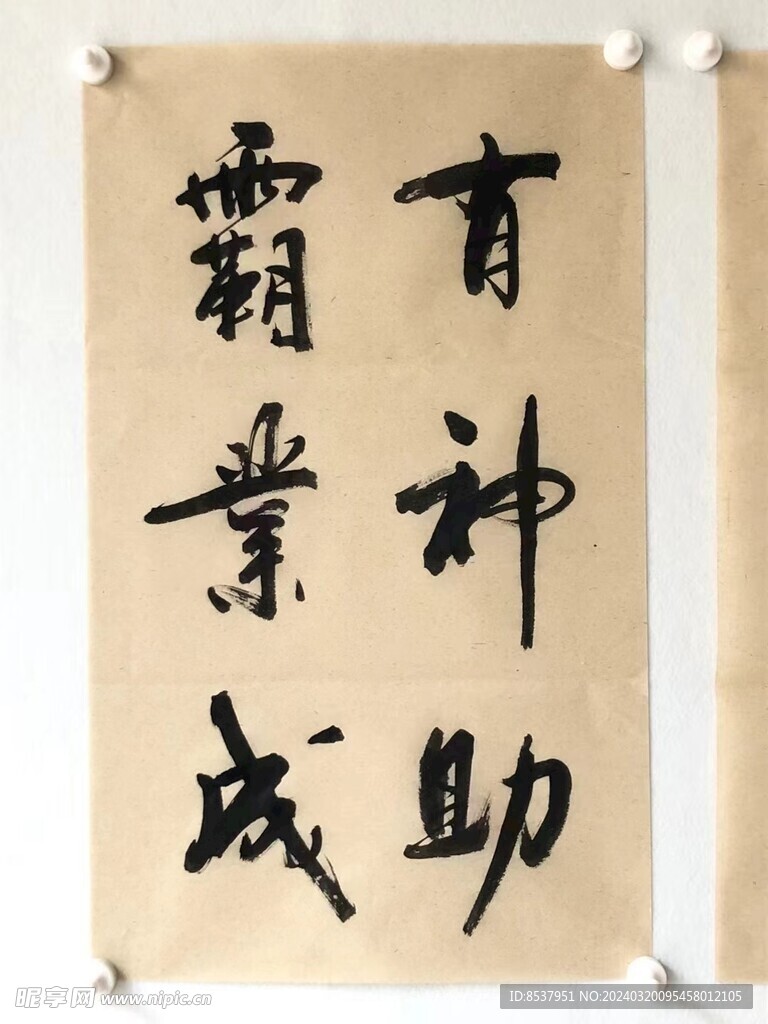 有神助
霸業成
昵享网 www.nipic.cn
ID:8537951 NO:20240320095458012105